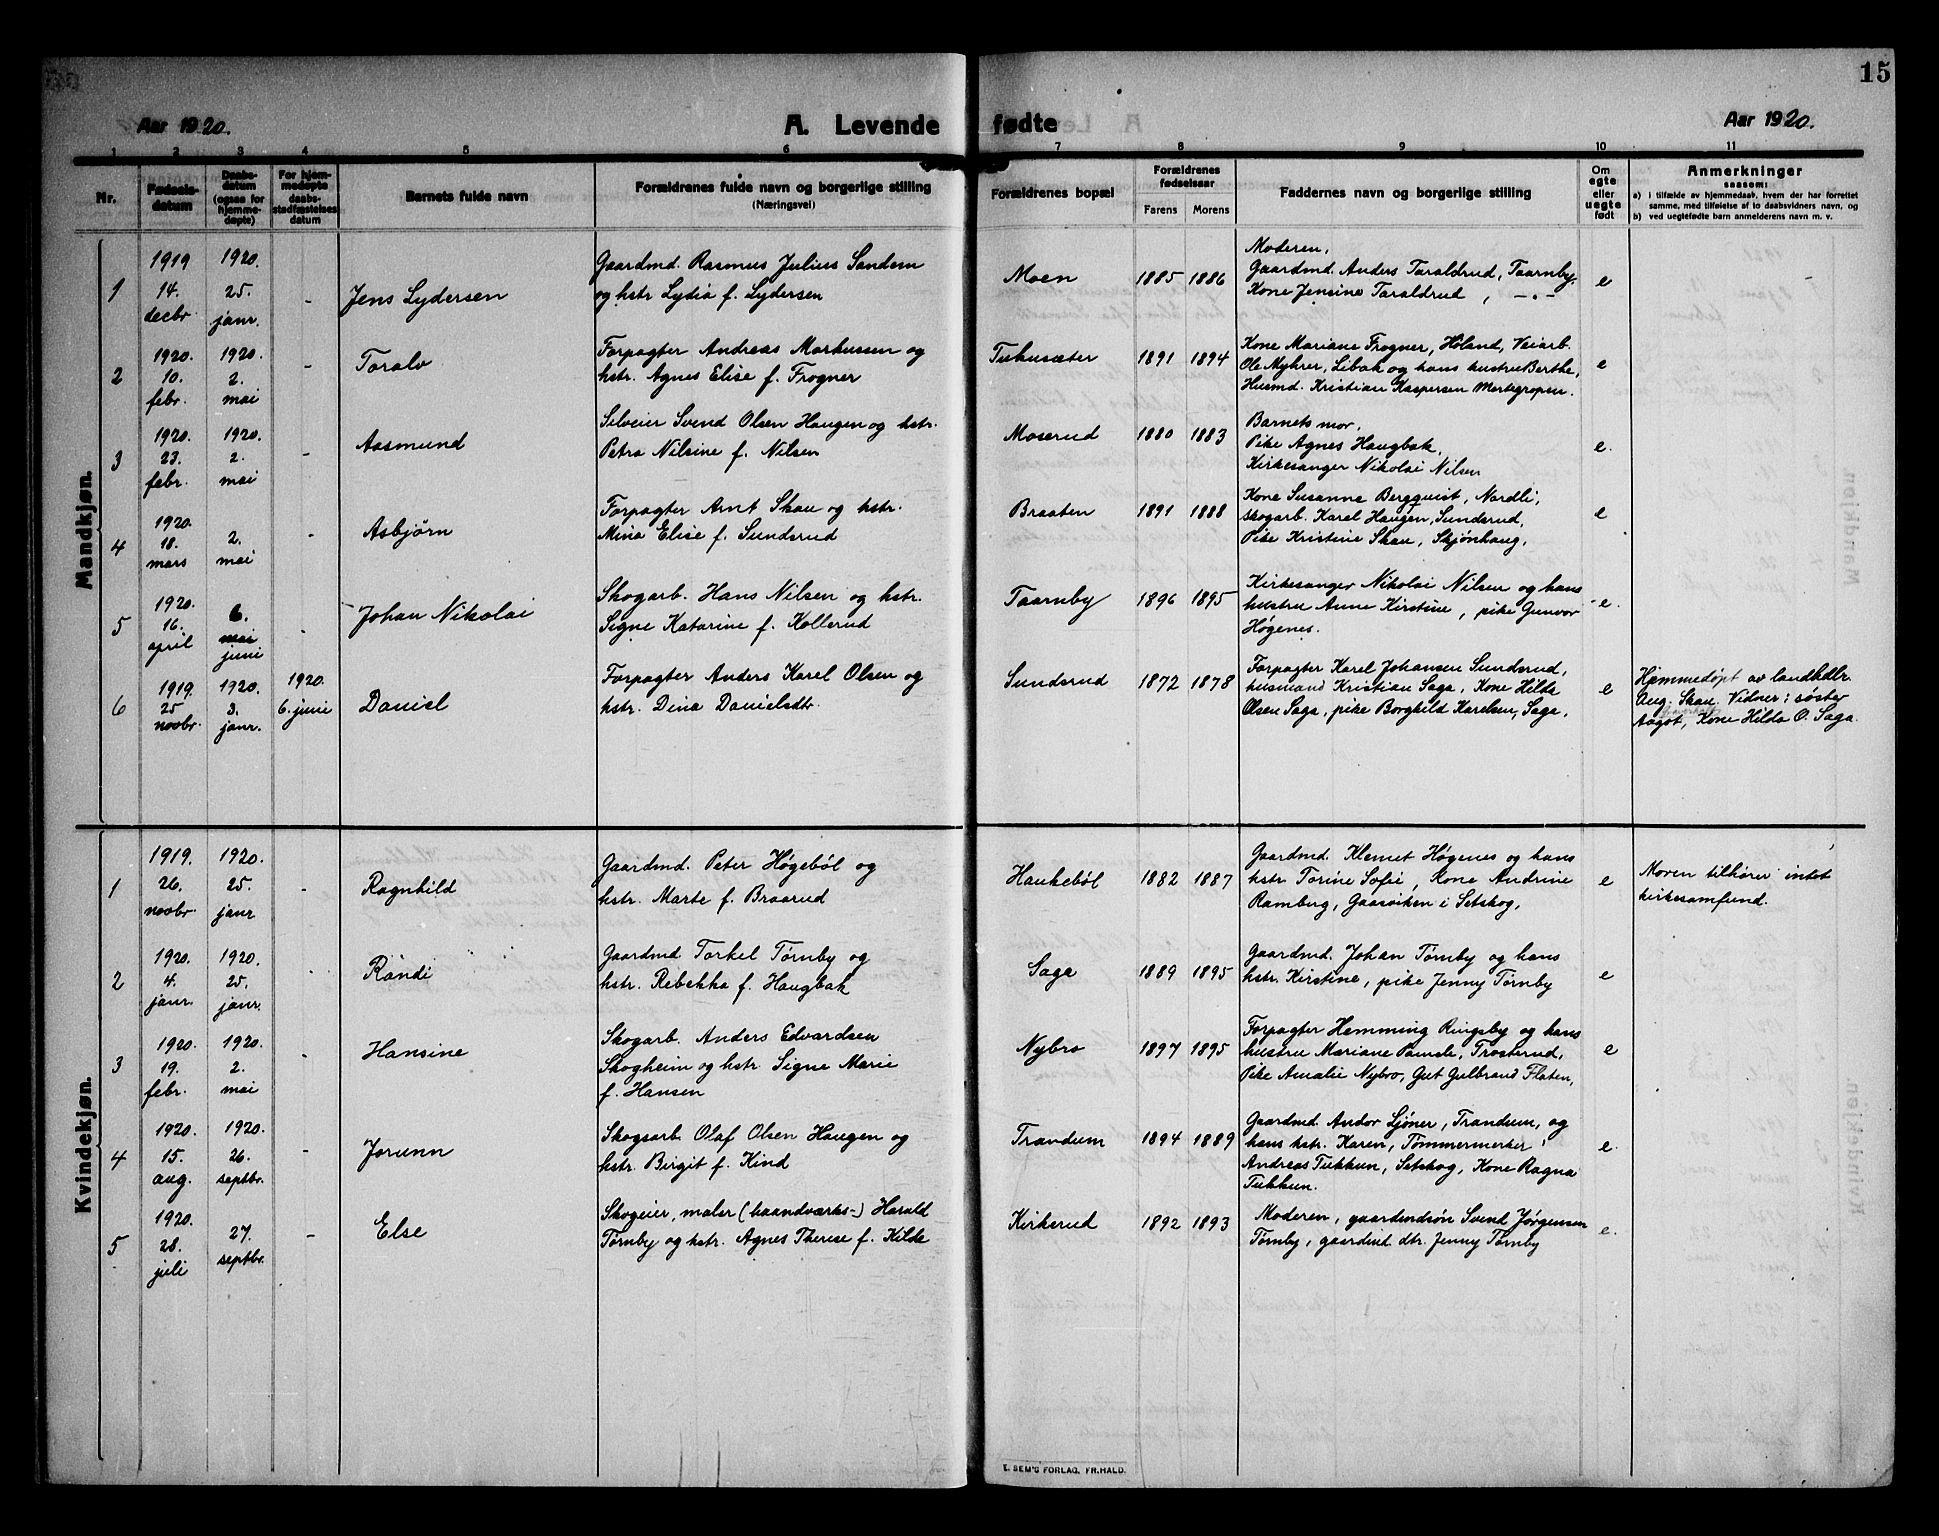 15
Aar 1920.
A. Levende fødte
Aar 1920.
1 2 3 4 5 6 7 8 9 10 11
Nr.
Fødsels-
datum
Daabs-
datum
(ogsaa for
hjemme-
døpte)
For hjem-
medøpte
daabs-
stadfæstelses
datum
Barnets fulde navn
Forældrenes fulde navn og borgerlige stilling
(Næringsvei)
Forældrenes bopæl
Forældrenes
fødselsaar
Farens Morens
Faddernes navn og borgerlige stilling
Om
egte
eller
uegte
født
Anmerkninger
saasom:
a) i tilfælde av hjemmedaab, hvem der har forrettet
samme, med tilføielse af to daabsvidners navn, og
b) ved uegtefødte barn anmelderens navn m. v.
Mandkjøn.
1
1919
14.
decbr
1920.
25.
janr.
-
Jens Lydersen
Gaardmd. Rasmus Julius Sandem
og hstr Lydia f. Lydersen
Moen
1885 1886
Moderen,
Gaardmd. Anders Taraldrud, Taarnby,
Kone Jensine Taraldrud, -"-
e
2
1920.
10.
febr.
1920.
2.
mai
-
Toralv
Forpagter Andreas Markussen og
hstr. Agnes Elise f. Frogner
Tukusæter
1891 1894
Kone Mariane Frogner, Høland, Veiarb.
Ole Myhrer, Libak og hans hustru Berthe,
Husmd. Kristian Kaspersen Mertegropen.
e
3
1920.
23.
febr.
1920.
2.
mai
-
Aasmund
Selveier Svend Olsen Haugen og hstr.
Petra Nilsine f. Nilsen
Moserud
1880 1883
Barnets mor,
Pike Agnes Haugbak,
Kirkesanger Nikolai Nilsen
e.
4
1920.
18.
mars
2.
mai
-
Asbjørn
Forpagter Arnt Skau og hstr.
Mina Elise f. Sundsrud
Braaten
1891 1888
Kone Susanne Bergquist, Nordli,
skogarb. Karel Haugen, Sundsrud,
Pike Kristine Skau, Skjønhaug,
e
5
1920.
16.
april
6.
mai
juni
-
Johan Nikolai
Skogarb. Hans Nilsen og hstr.
Signe Katarine f. Kollerud
Taarnby
1896 1895
Kirkesanger Nikolai Nilsen og hans
hustru Anne Kirstine, pike Gunvor
Høgenes.
e.
6
1919.
25
novbr.
1920.
3.
janr.
1920.
6. juni
Daniel
Forpagter Anders Karel Olsen og
hstr. Dina Danielsdtr.
Sundsrud
1872 1878
Forpagter Karel Johansen Sundsrud,
husmand Kristian Saga, Kone Hilda
Olsen Saga, pike Borghild Karelsen, Saga,
e
Hjemmedøpt av landhdlr.
Aug. Skau Vidner: søster
Aagot, Kone Hilda O. Saga.
Kvindekjøn.
1
1919.
26.
novbr.
1920.
25.
janr
-
Ragnhild
Gaardmd. Peter Høgeböl og
hstr. Marte f. Braarud
Haukeböl
1882 1887
Gaardmd. Klemet Høgenes og hans
hstr. Torine Sofie, Kone Andrine
Ramberg, Gaasviken i Setskog,
e
Moren tilhører intet
kirkesamfund.
2
1920.
4.
janr.
1920.
25.
janr.
-
Randi
Gaardmd Torkel Tørnby og
hstr. Rebekka f. Haugbak
Saga
1889 1895
Gaardmd. Johan Tørnby og hans
hstr. Kirstine, pike Jenny Tørnby
e
3
1920.
19.
febr.
1920.
2.
mai
-
Hansine
Skogarb. Anders Edvardsen
Skogheim og hstr. Signe Marie
f. Hansen
Nybro
1897 1895
Forpagter Hemming Ringsby og hans
hustru Mariane Tømte, Trosterud,
Pike Amalie Nybro, Gut Gulbrand Flaten,
e
4
1920.
15.
aug.
1920.
26.
septbr.
-
Jorunn
Skogsarb. Olaf Olsen Haugen og
hstr. Birgit f. Kind
Trandum
1894 1889
Gaardmd. Andor Ljøner, Trandum, og
hans hstr. Karen, Tømmermerker
Andreas Tukkun, Setskog, Kone Ragna
Tukkun.
e.
5
1920.
28.
juli
27.
septbr.
-
Else
Skogeier, maler (haandværks-) Harald
Tørnby og hstr. Agnes Therese f. Kilde
Kirkerud
1892 1893
Moderen, gaardmdsøn Svend Jørgensen
Tørnby, gaardmd. dtr. Jenny Tørnby
e.
E. SEM'S FORLAG, FR.HALD.